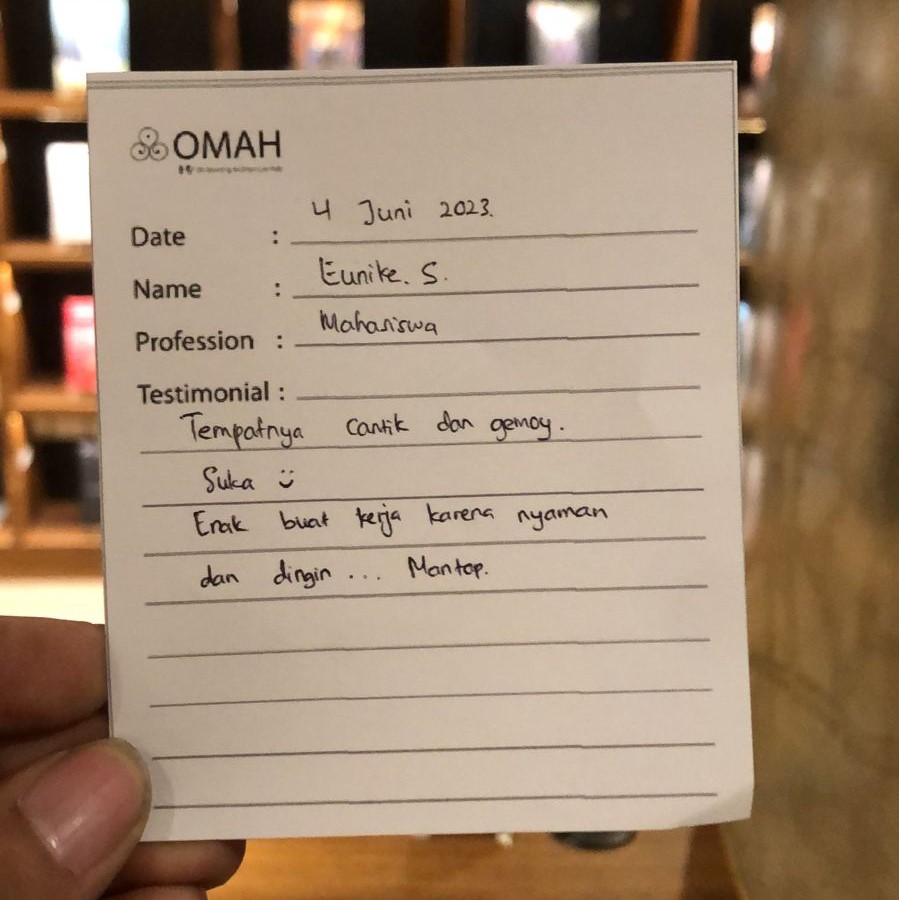 OMAH
Date : 4 Juni 2023.
Name : Eunike. S.
Profession : Mahasiswa
Testimonial :
Tempatnya cantik dan gemoy.
Suka
Enak buat kerja karena nyaman
dan dingin ... Mantap.